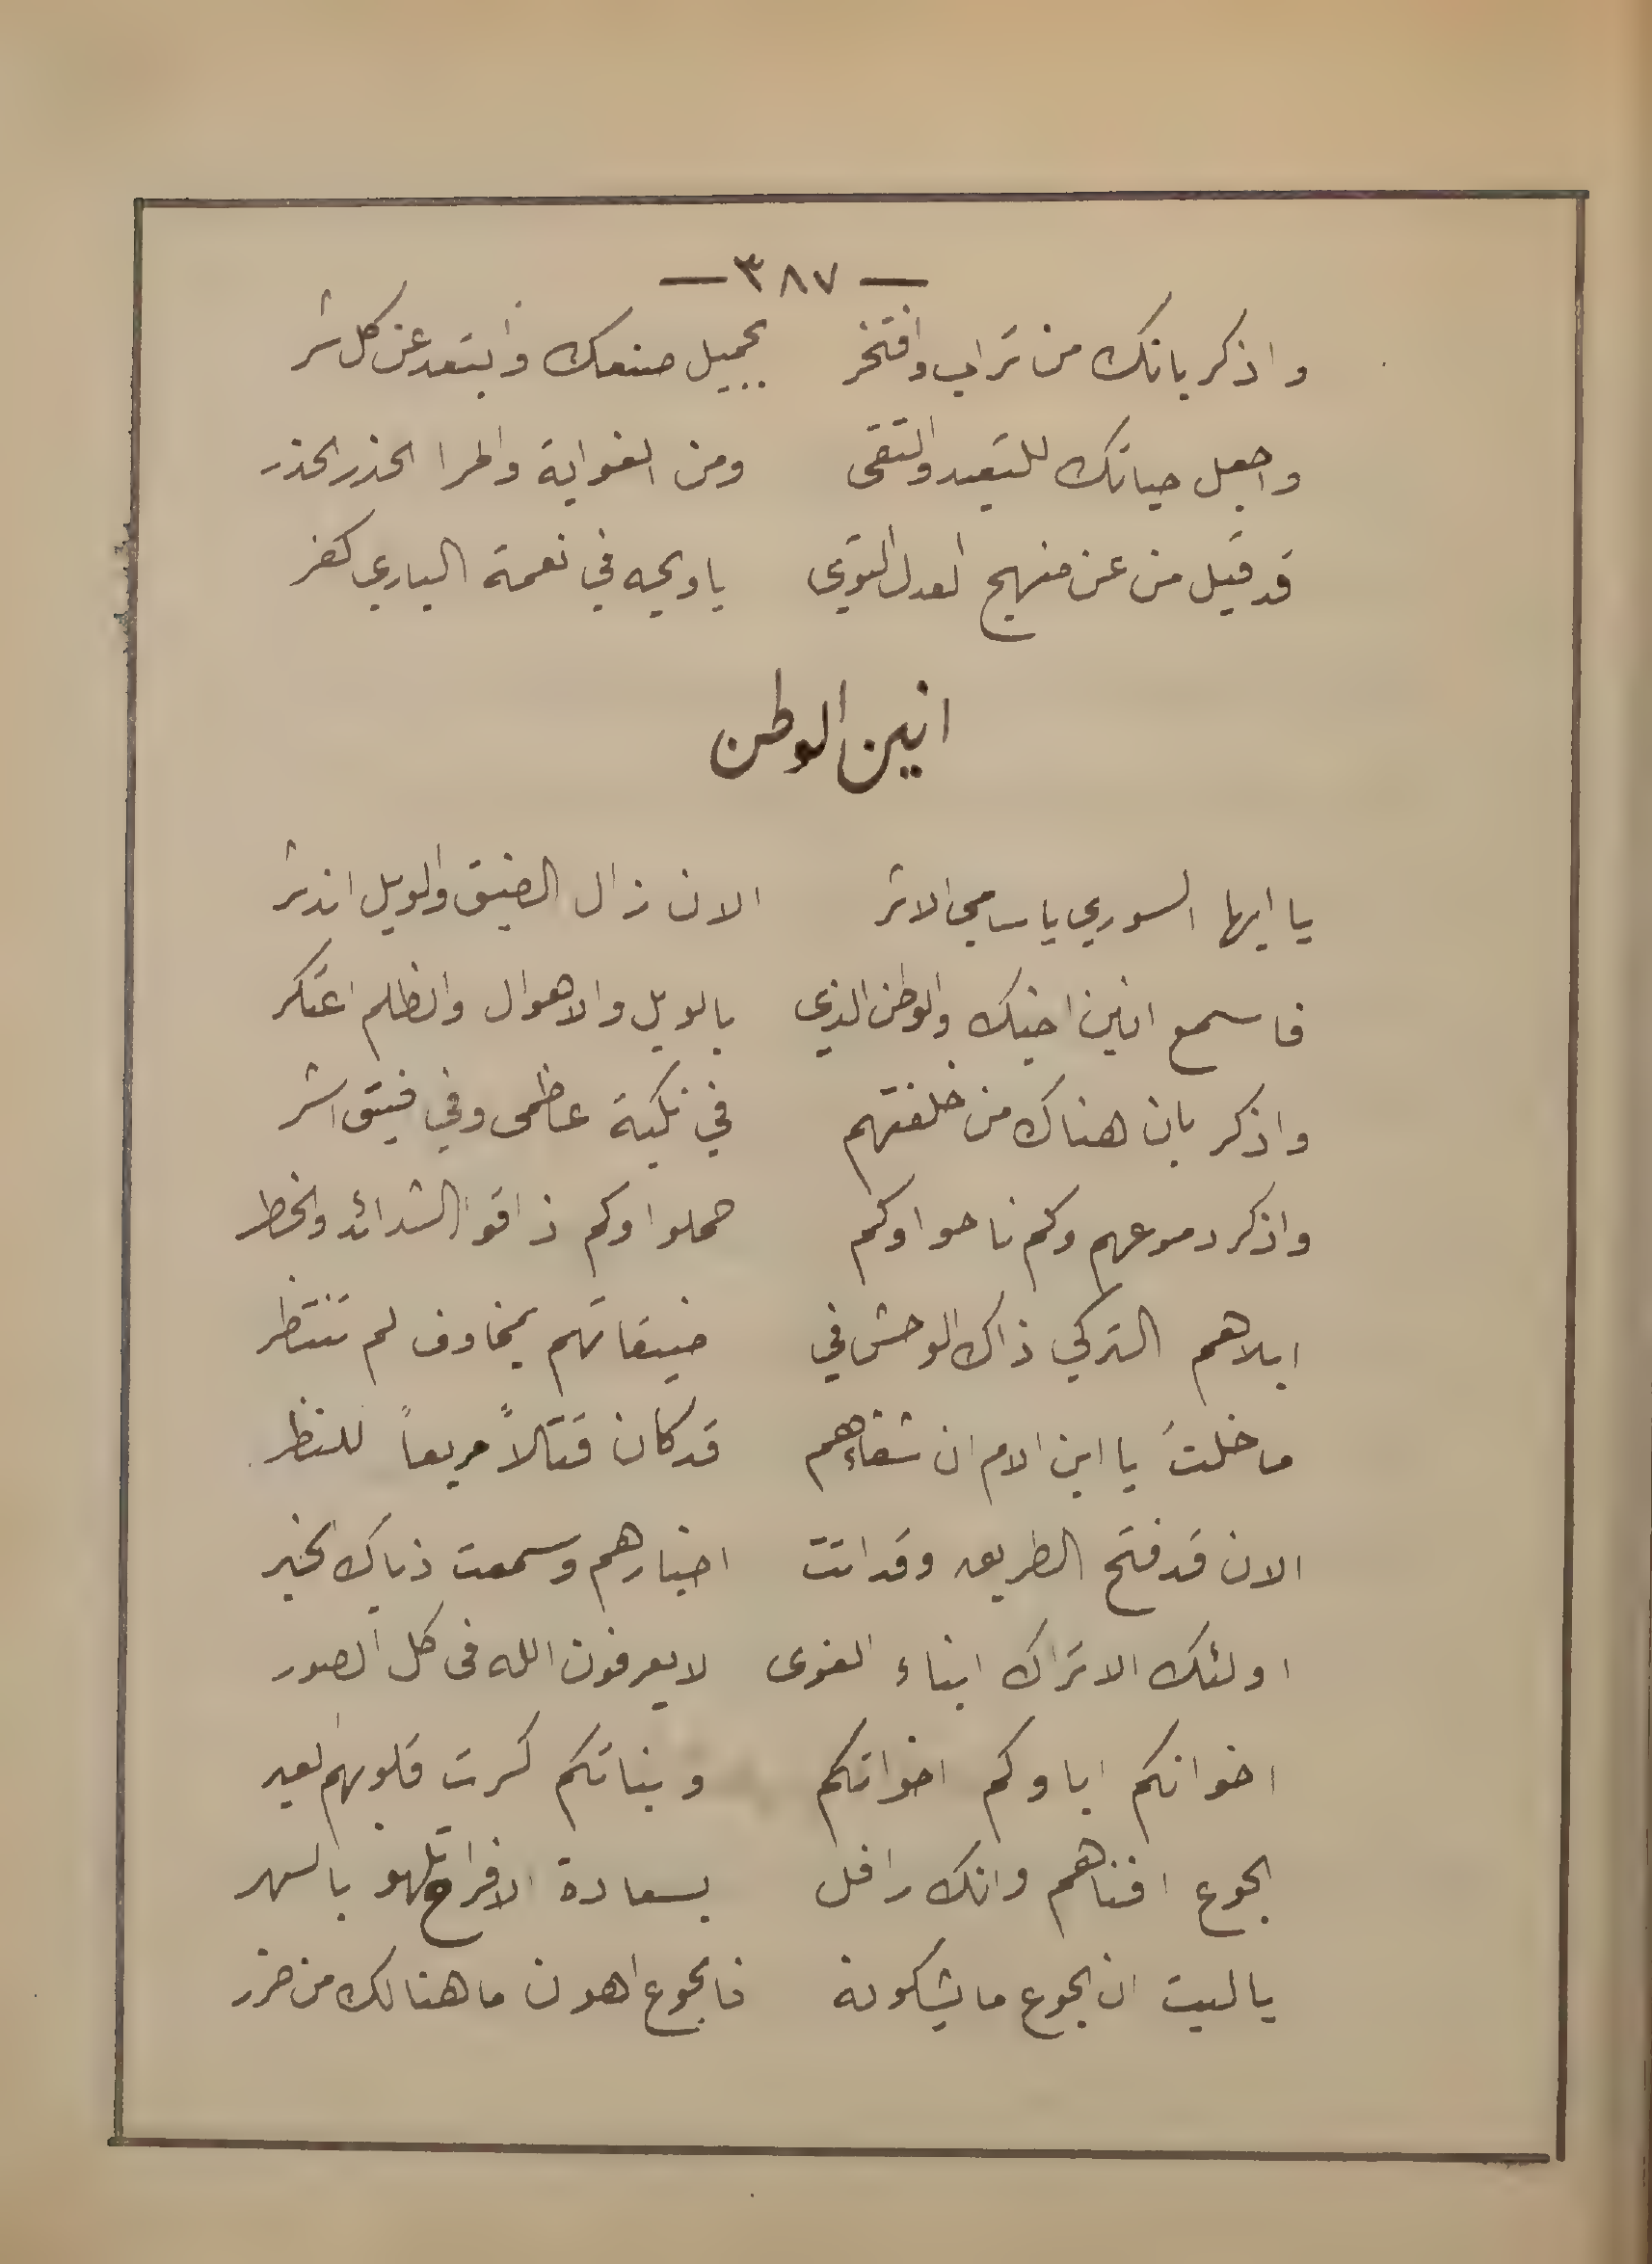 — ٣٨٧ —
واذكر بانك من تراب وافتخر بجميل صنعك وابتعد عن كل شر
واجعل حياتك للتعبد والتقى ومن الغواية والمرا الحذر الحذر
قد قيل من عن منهج العدل التوى ياويحه في نعمة الباري كفر
انين الوطن
يا ايها السوري يا سامي الاثر الان زال الضيق والويل اندثر
فاسمع انين اخيك والوطن الذي بالويل والاهوال والظلم اعتكر
واذكر بان هناك من خلفتهم في نكبة عظمى وفي ضيق اشر
واذكر دموعهم وكم ناحوا وكم حملوا وكم ذاقوا الشدائد والخطر
ابلاهم التركي ذاك الوحش في ضيقاتهم بمخاوف لم تنتظر
ما خلتَ يا ابن الام ان شقاءهم قد كان قتالاً مريعاً للنظر
الان قد فتح الطريق وقد اتت اخبارهم وسمعت ذياك الخبر
اولئك الاتراك ابناء الغوى لا يعرفون الله في كل الصور
اخوانكم اباوكم اخواتكم وبناتكم كسرت قلوبهم العبر
الجوع افناهم وانك رافل بسعادة الافراح تلهو بالسهر
ياليت ان الجوع ما يشكونه فالجوع اهون ما هنالك من ضرر